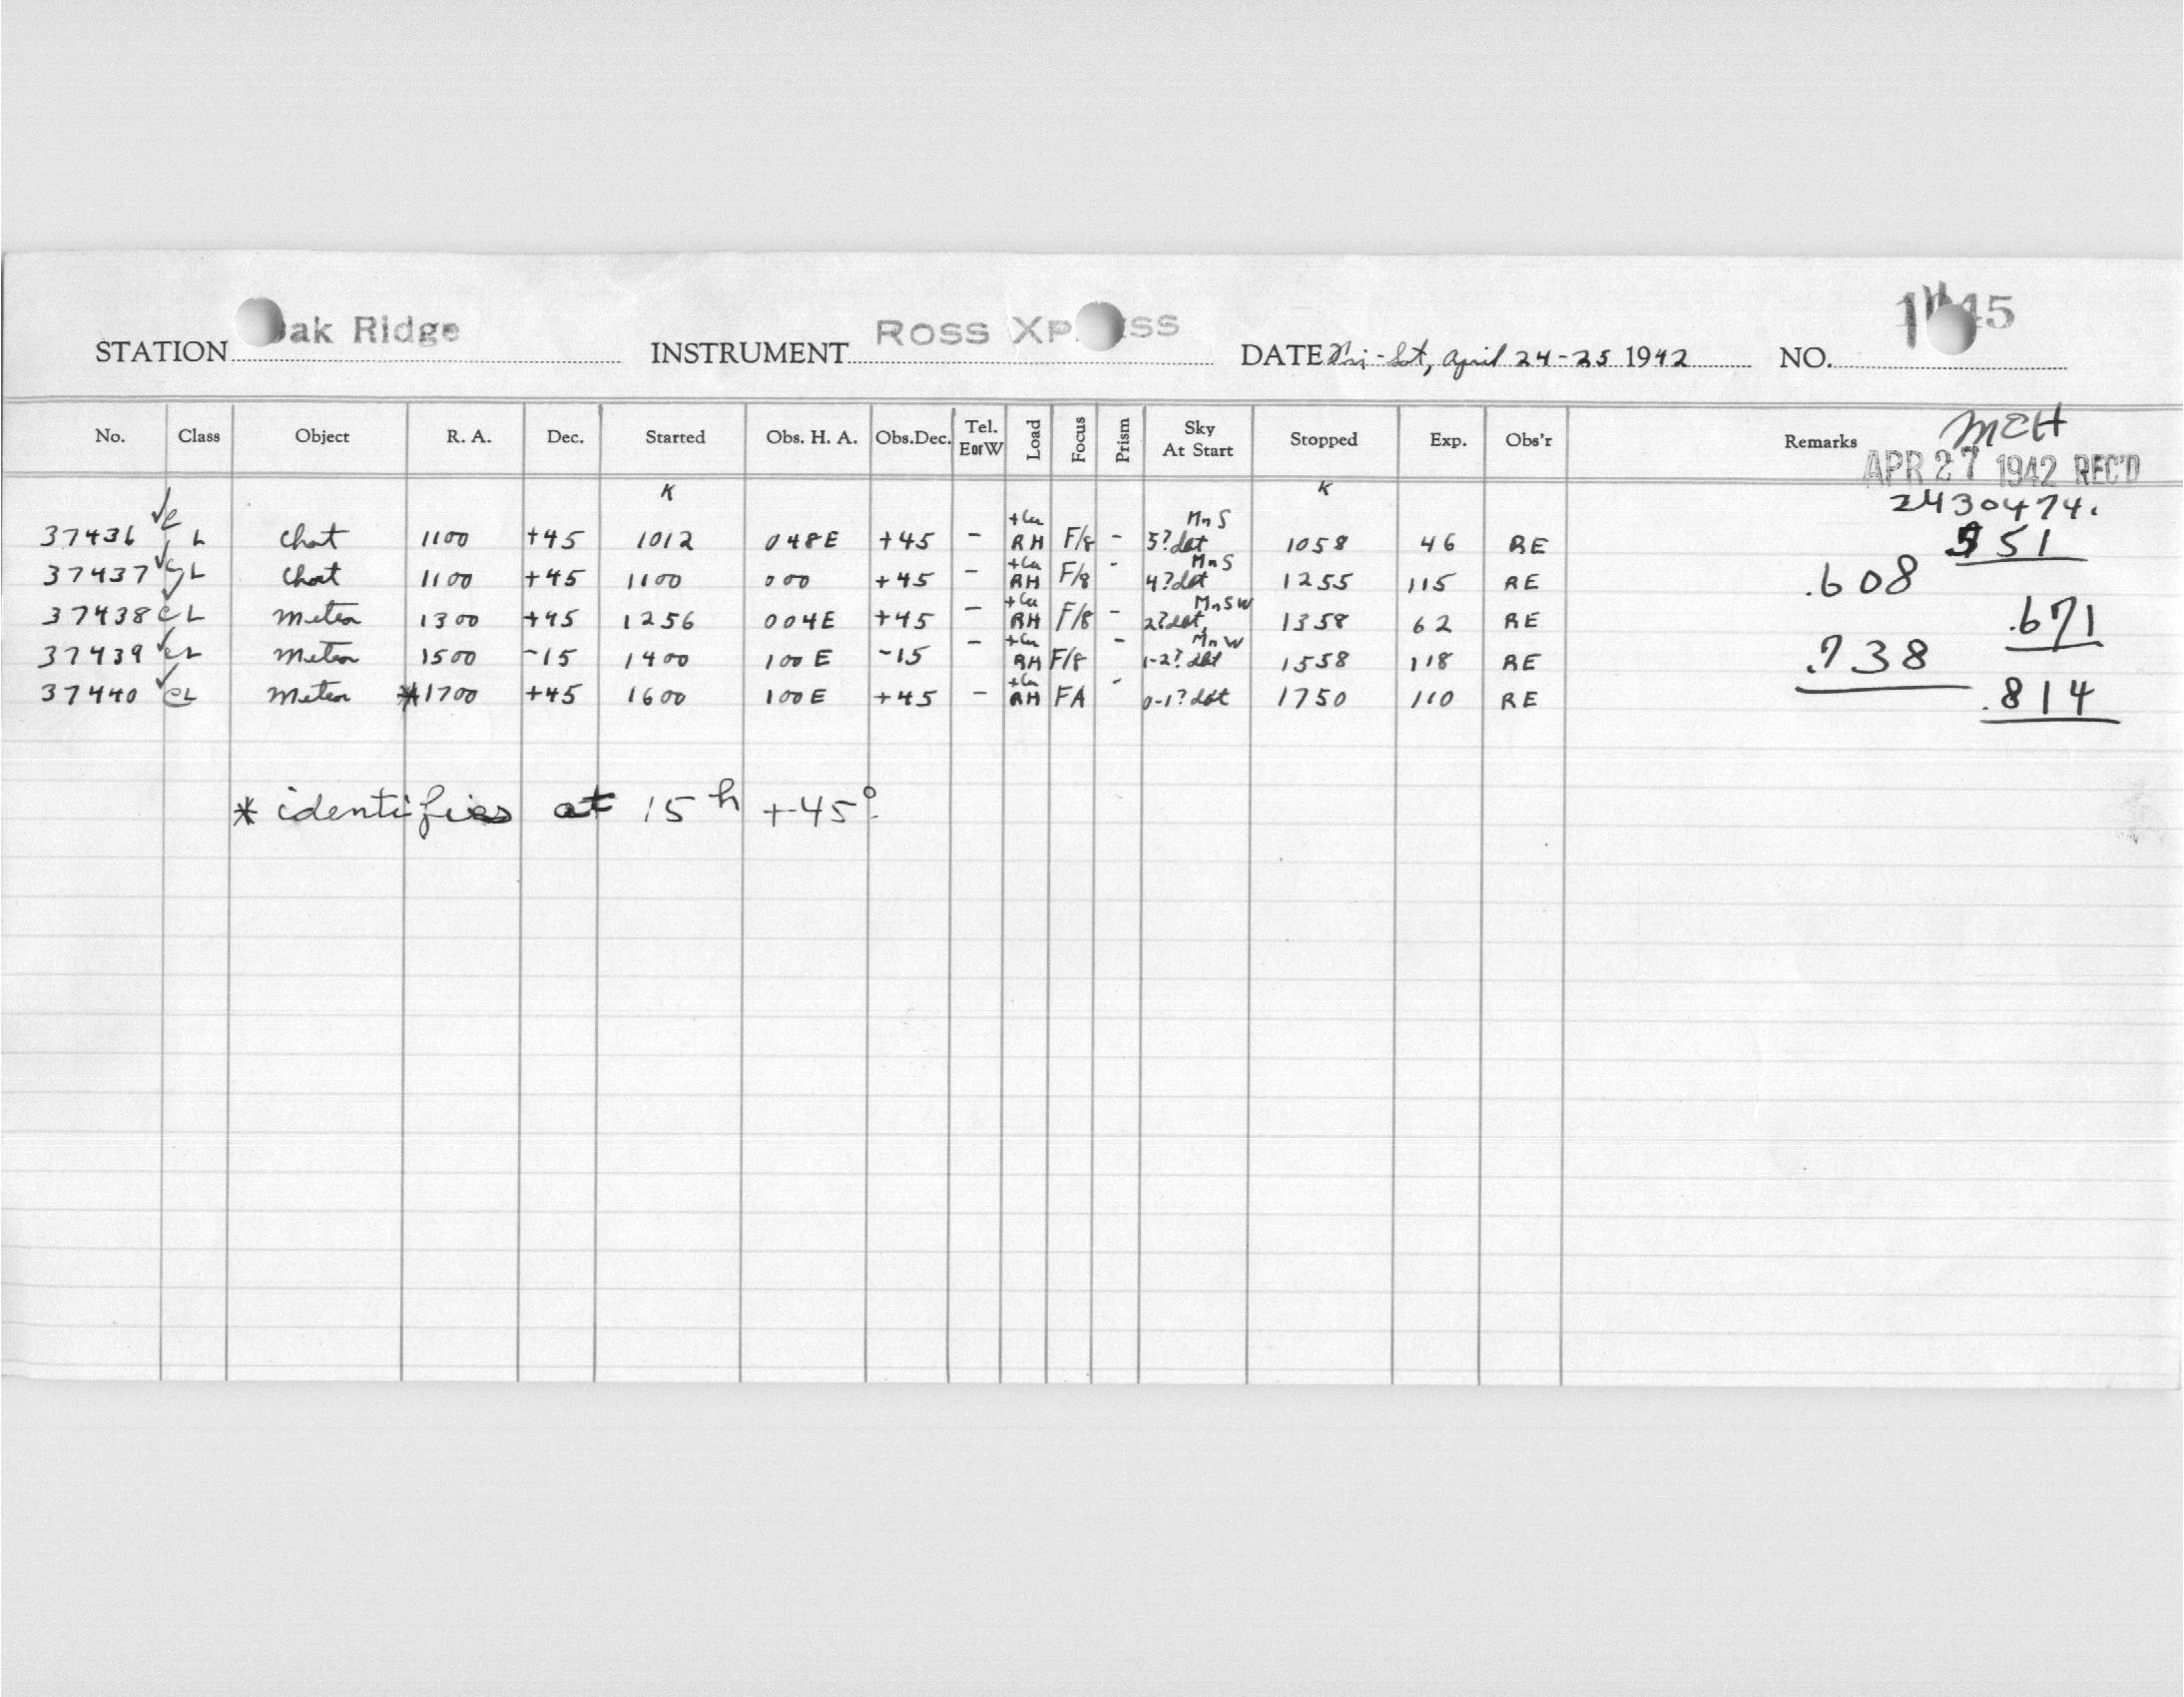 STATION Oak Ridge INSTRUMENT ROSS XPRESS DATE Fri-Sat, April 24-25 1942 NO. 45
No. Class Object R. A. Dec. Started Obs. H. A. Obs.Dec. Tel. EorW Load Focus Prism Sky At Start Stopped Exp. Obs'r Remarks MCH
APR 27 1942 REC'D
K K 2430474.
37436 c L Chart 1100 +45 1012 048E +45 - +Cu RH F/8 - 5? dst MnS 1058 46 RE 551
37437 c L Chart 1100 +45 1100 000 +45 - +Cu RH F/8 - 4? dst MnS 1255 115 RE .608
37438 c L Meteor 1300 +45 1256 004E +45 - +Cu RH F/8 - 2? dst MnSW 1358 62 RE .671
37439 c L Meteor 1500 -15 1400 100E -15 - +Cu RH F/8 - 1-2? dst MnW 1558 118 RE .738
37440 c L Meteor *1700 +45 1600 100E +45 - +Cu RH FA - 0-1? dst 1750 110 RE .814
* identifies at 15h +45°